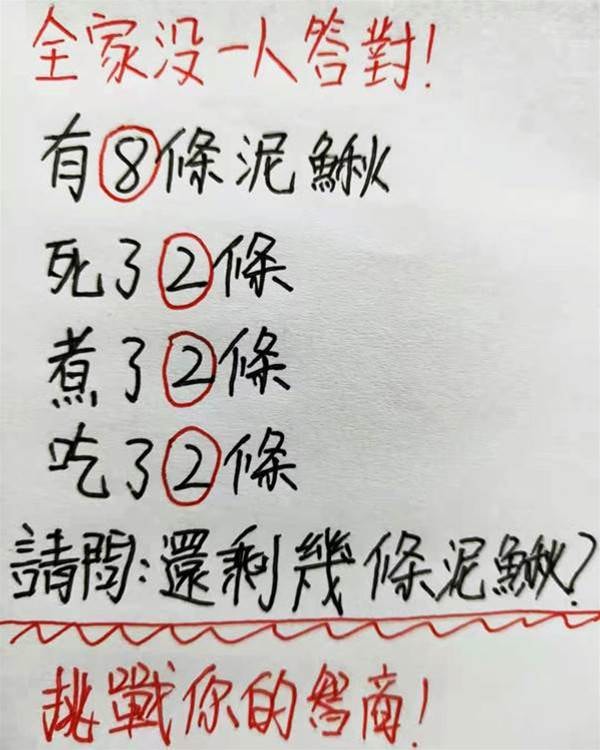 全家没一人答對!
有8條泥鰍
死了2條
煮了2條
吃了2條
請問:還剩幾條泥鰍?
挑戰你的智商!